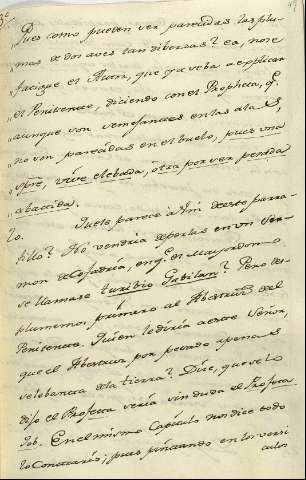 3.ª
„Pues como pueden ser parecidas las plu-
„mas de dos aves tan diversas? ea, no se
„fatigue el Autor, que ya va a explicar
el Penitente, diciendo con el Propheta, q.e
„aunque son semejantes en las alas,
„no son parecidas en el buelo, pues una
„siempre, vive elevada, otra por ser pesada
„abatida.
To. Que te parece a ti de este parra-
fillo? No vendria de perlas en un Ser-
mon de Cofadria, en q.e el Mayordomo
se llamase Turibio Gabilan? Pero des-
plumemos primero al Abestruz del
Penitente. Quien le diria a este Señor,
que el Abestruz por pesado apenas
se levanta de la tierra? Dire, que se lo
dijo el Profeta seria sin duda el Profeta
Job. En el mismo Capitulo nos dice todo
lo Contrario; pues pintando en los versi
culos